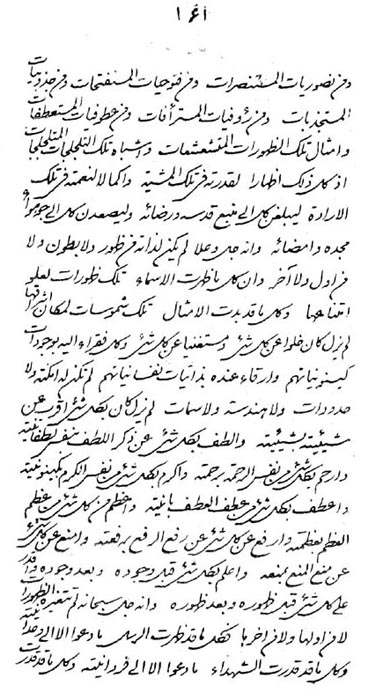 ١٤١
ومن نصوريات المستنصرات ومن فتوحيات المستفتحات ومن جذوبيات
المستجذبات ومن رؤوفيات المسترأفات ومن عطوفيات المستعطفات
وامثال تلك الظهورات المتشعشعات واشباه تلك التلجلجات المتلجلجات
اذ كل ذلك اظهارا لقدرته في تلك المشية واكمالا لنعمته في تلك
الارادة ليبلغن كل الى منبع قدسه ورضائه وليصعدن كل الى
مجده وامضائه وانه جل وعلا لم يكن لذاته من ظهور ولا بطون ولا
من اول ولا آخر وان كل ما ظهرت الاسماء تلك ظهورات لعلو
امتناعها وكل ما قد بدت الامثال تلك شموسات لمكان
لم يزل كان خلوا عن كل شئ ومستغنيا عن كل شئ وكل فقراء اليه بوجودات
كينونياتهم وارقاء عنده بذاتيات نفسانياتهم لم تكن له امكنة ولا
حدودات ولا هندسة ولا سمات لم يزل كان بكل شئ اقرب عن
شيئية بشيئيته والطف بكل شئ عن ذكر اللطف بنفس
وارحم بكل شئ من نفس الرحمة برحمته واكرم بكل شئ من نفس الكرم بكينونيته
واعطف بكل شئ من عطف العطف وأعظم من كل شئ من عظم
العظم بعظمته وارفع عن كل شئ عن رفع الرفع برفعته وامنع عن كل شئ
عن منع المنع بمنعه واعلم بكل شئ قبل وجوده وبعد وجوده واقدر
على كل شئ قبل ظهوره وبعد ظهوره وانه جل سبحانه لم تتغيره الظهورات
لا من اولها ولا من آخرها فكل ما قد ظهرت الرسل ما دعوا الا الى وحدانيته
وكل ما قد قدرت الشهداء ما دعوا الا الى فردانيته وكل ما قد قدرت